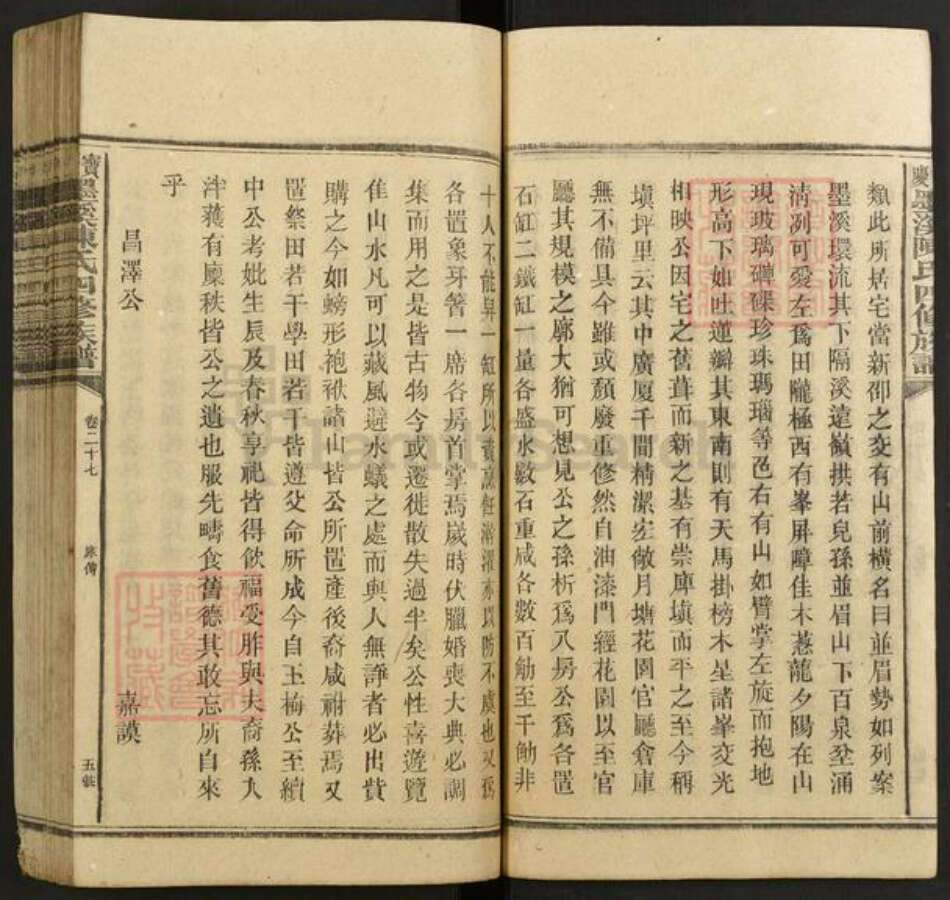 類此所居宅當新邵之交有山前橫名曰並眉勢如列案
墨溪環流其下隔溪遠嶺拱若兒孫並眉山下百泉坌涌
清冽可愛左爲田隴極西有峯屏障佳木蔥蘢夕陽在山
現玻璃硨磲珍珠瑪瑙等色右有山如臂掌左旋而抱地
形高下如吐蓮瓣其東南則有天馬掛榜木星諸峯交光
相映公因宅之舊葺而新之基有崇庳塡而平之至今稱
塡坪里云其中廣厦千間精潔宏敞月塘花園官廳倉庫
無不備具今雖或頹廢重修然自油漆門經花園以至官
廳其規模之廓大猶可想見公之孫析爲八房公爲各置
石缸二鐵缸一量各盛水數石重咸各數百觔至千觔非
十人不能舁一缸所以資烹飪澣濯亦以防不虞也又爲
各置象牙箸一席各房首掌焉歲時伏臘婚喪大典必調
集而用之是皆古物今或遷徙散失過半矣公性喜遊覽
佳山水凡可以藏風避水蟻之處而與人無諍者必出貲
購之今如螃形袍袱諸山皆公所置產後裔咸祔葬焉又
置祭田若干學田若干皆遵父命所成今自玉梅公至續
中公考妣生辰及春秋享祀皆得飲福受胙與夫裔孫入
泮穫有廩秩皆公之遺也服先疇食舊德其敢忘所自來
乎
昌澤公
嘉謨
寶墨溪陳氏四修族譜
卷二十七
五